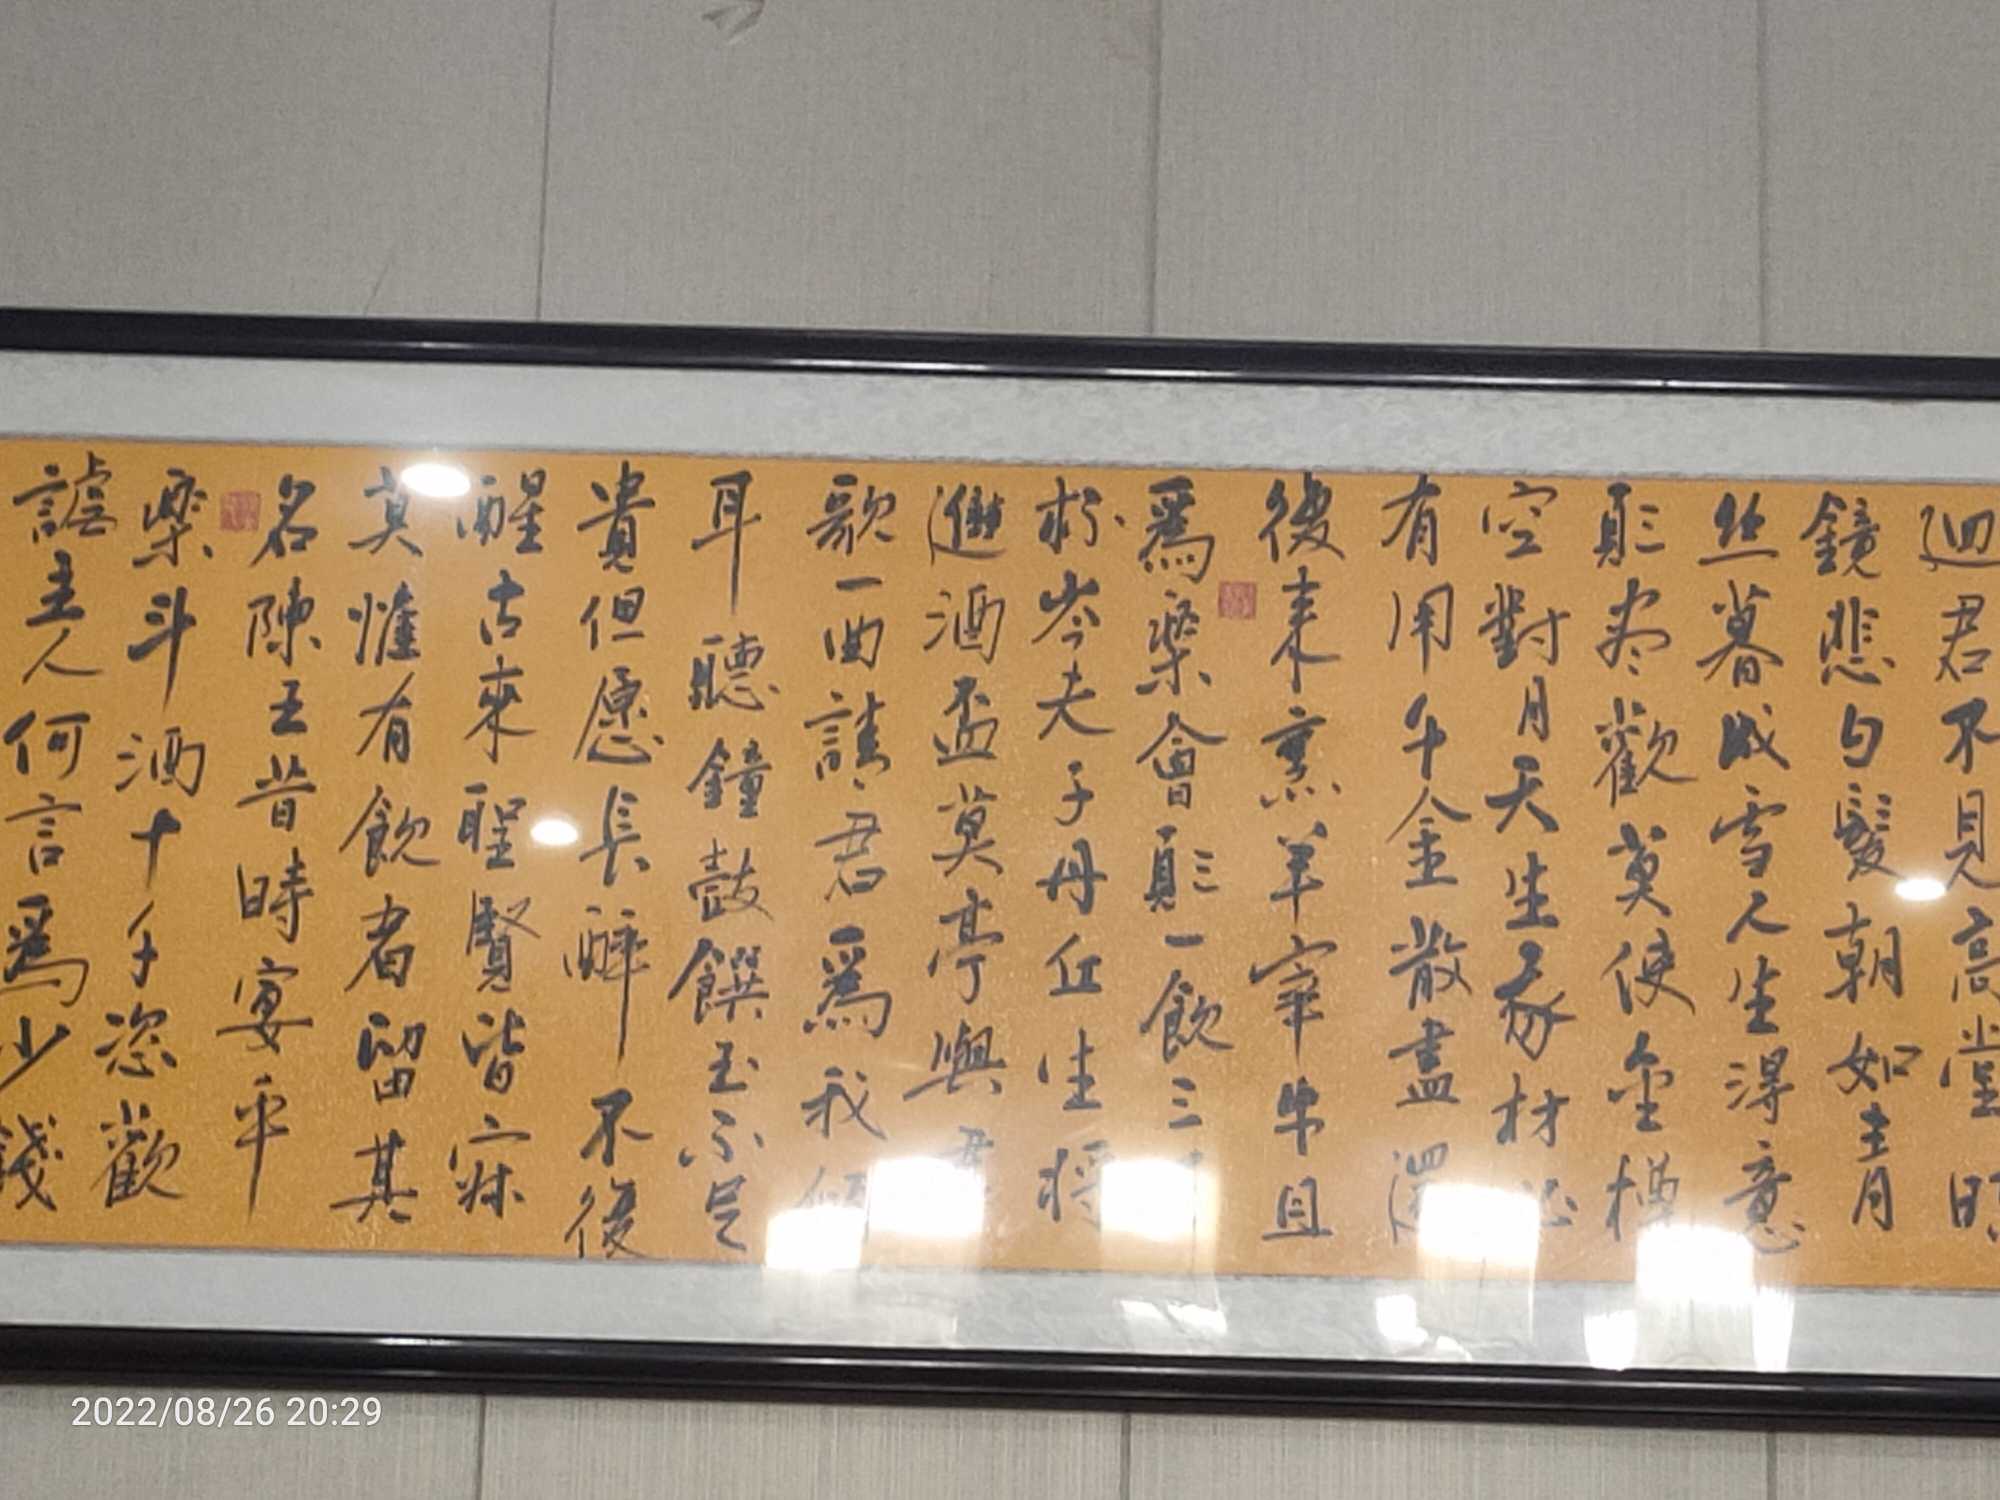 迴君不見高堂明
鏡悲白髮朝如青
丝暮成雪人生得意
須尽歡莫使金樽
空對月天生我材必
有用千金散盡還
復来烹羊宰牛且
爲樂會須一飲三
杯岑夫子丹丘生將
進酒盃莫亭與君
歌一曲請君爲我傾
耳聽鐘鼓饌玉不足
貴但愿長醉不復
醒古來聖賢皆寂
莫惟有飲者留其
名陳王昔時宴平
樂斗酒十千恣歡
謔主人何言爲少錢
2022/08/26 20:29